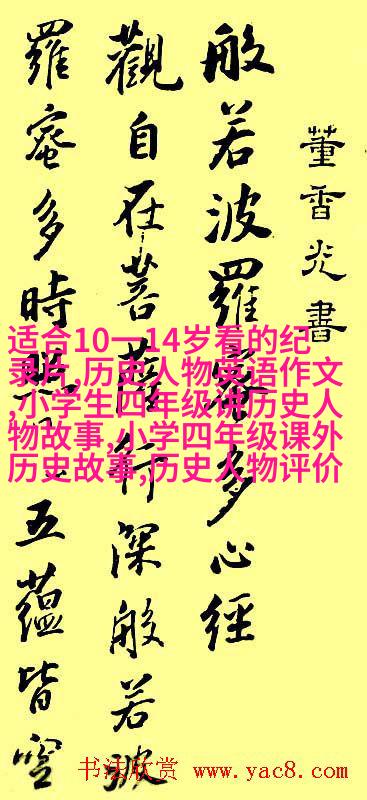 董香光書
般若波羅蜜多心經
觀自在菩薩行深般若波
羅蜜多時照見五蘊皆空
适合10一14岁看的纪
录片,历史人物英语作文
,小学生四年级讲历史人
物故事,小学四年级课外
历史故事,历史人物评价
书法欣赏 www.yac8.com